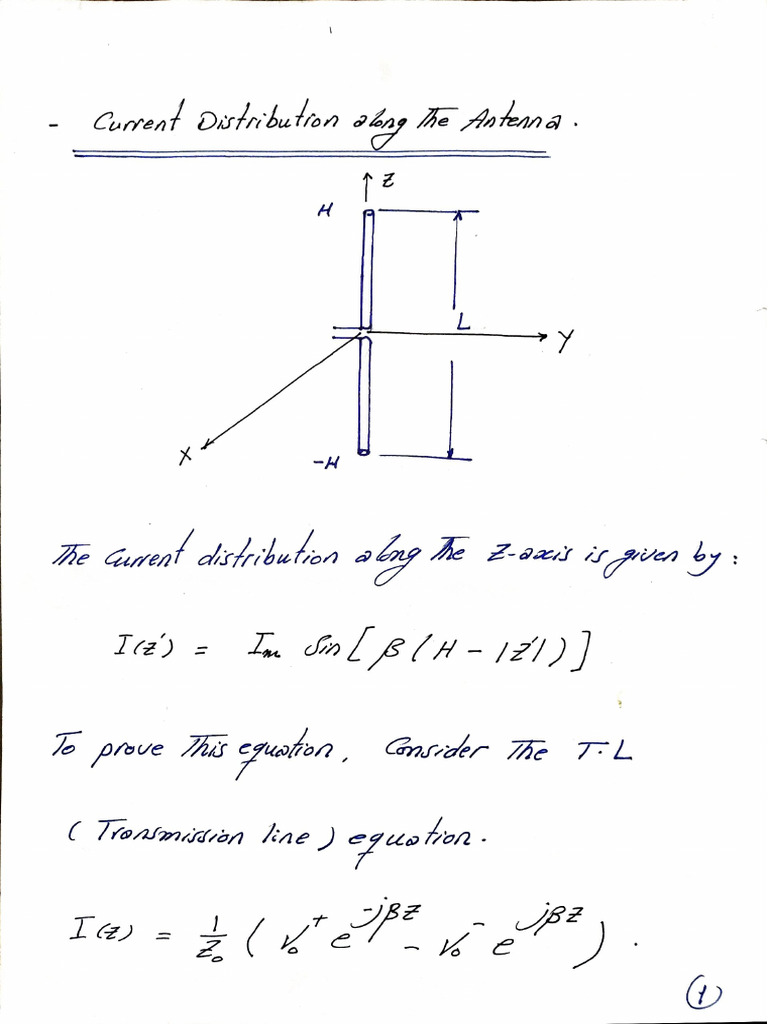 - Current Distribution along The Antenna.
Z
H
L
Y
X
-H
The Current distribution along The Z-axis is given by:
I(z') = Im Sin[β(H - |z'|)]
To prove This equation, Consider The T.L
(Transmission line) equation.
I(z) = 1/Z₀ (V₀⁺ e^-jβz - V₀⁻ e^jβz).
1